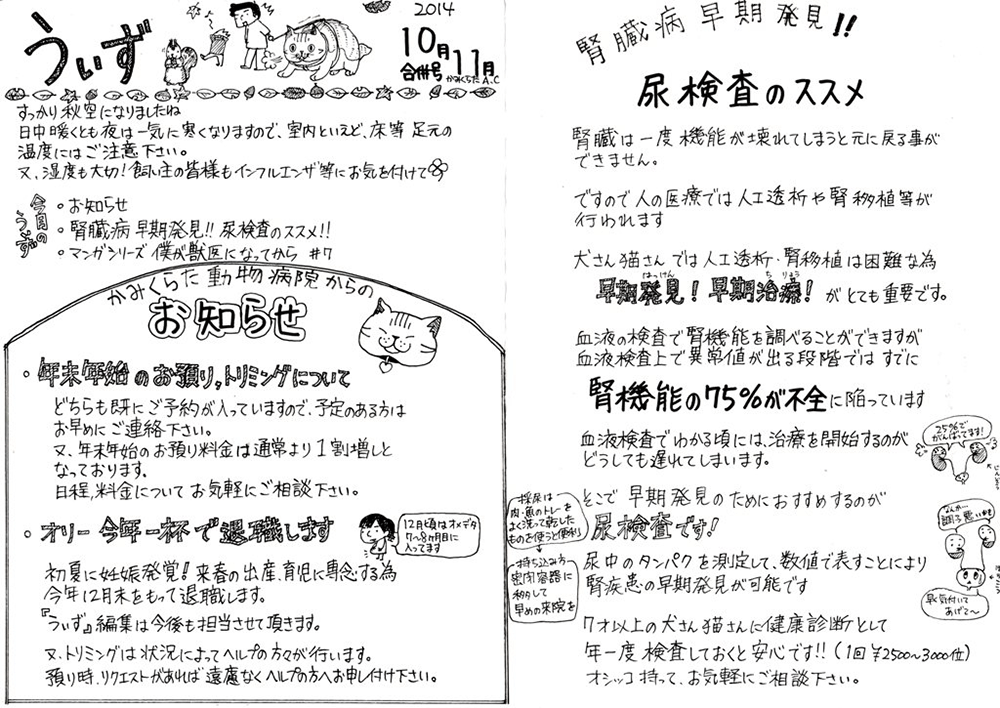 うぃず
2014
10月
11月
合併号
かみくらたA.C
すっかり秋空になりましたね
日中暖くとも夜は一気に寒くなりますので、室内といえど、床等足元の
温度にはご注意下さい。
又、湿度も大切！飼い主の皆様もインフルエンザ等にお気を付けて
今月のうぃず
・お知らせ
・腎臓病早期発見!! 尿検査のススメ!!
・マンガシリーズ 僕が獣医になってから #7
かみくらた動物病院からの
お知らせ
・年末年始のお預り,トリミングについて
どちらも既にご予約が入っていますので、予定のある方は
お早めにご連絡下さい。
又、年末年始のお預り料金は通常より1割増しと
なっております。
日程,料金についてお気軽にご相談下さい。
・オリー今年一杯で退職します
12月頃はオメデタ
7〜8ヶ月目に
入ってます
初夏に妊娠発覚！来春の出産、育児に専念する為
今年12月末をもって退職します。
『うぃず』編集は今後も担当させて頂きます。
又、トリミングは状況によってヘルプの方々が行います。
預り時、リクエストがあれば遠慮なくヘルプの方へお申し付け下さい。
腎臓病早期発見!!
尿検査のススメ
腎臓は一度機能が壊れてしまうと元に戻る事が
できません。
ですので人の医療では人工透析や腎移植等が
行われます
犬さん猫さんでは人工透析・腎移植は困難な為
はっけん ちりょう
早期発見！早期治療！がとても重要です。
血液の検査で腎機能を調べることができますが
血液検査上で異常値が出る段階ではすでに
腎機能の75%が不全に陥っています
25%で
がんばってます！
じんぞう
血液検査でわかる頃には、治療を開始するのが
どうしても遅れてしまいます。
そこで早期発見のためにおすすめするのが
尿検査です！
採尿は
肉・魚のトレーを
よく洗って乾した
ものを使うと便利
持ち込み方
密閉容器に
移して
早めの来院を
なんかー
調子悪いかも
早く気付いて
あげて〜
尿中のタンパクを測定して、数値で表すことにより
腎疾患の早期発見が可能です
7才以上の犬さん猫さんに健康診断として
年一度検査しておくと安心です!!(1回¥2500〜3000位)
オシッコ持って、お気軽にご相談下さい。